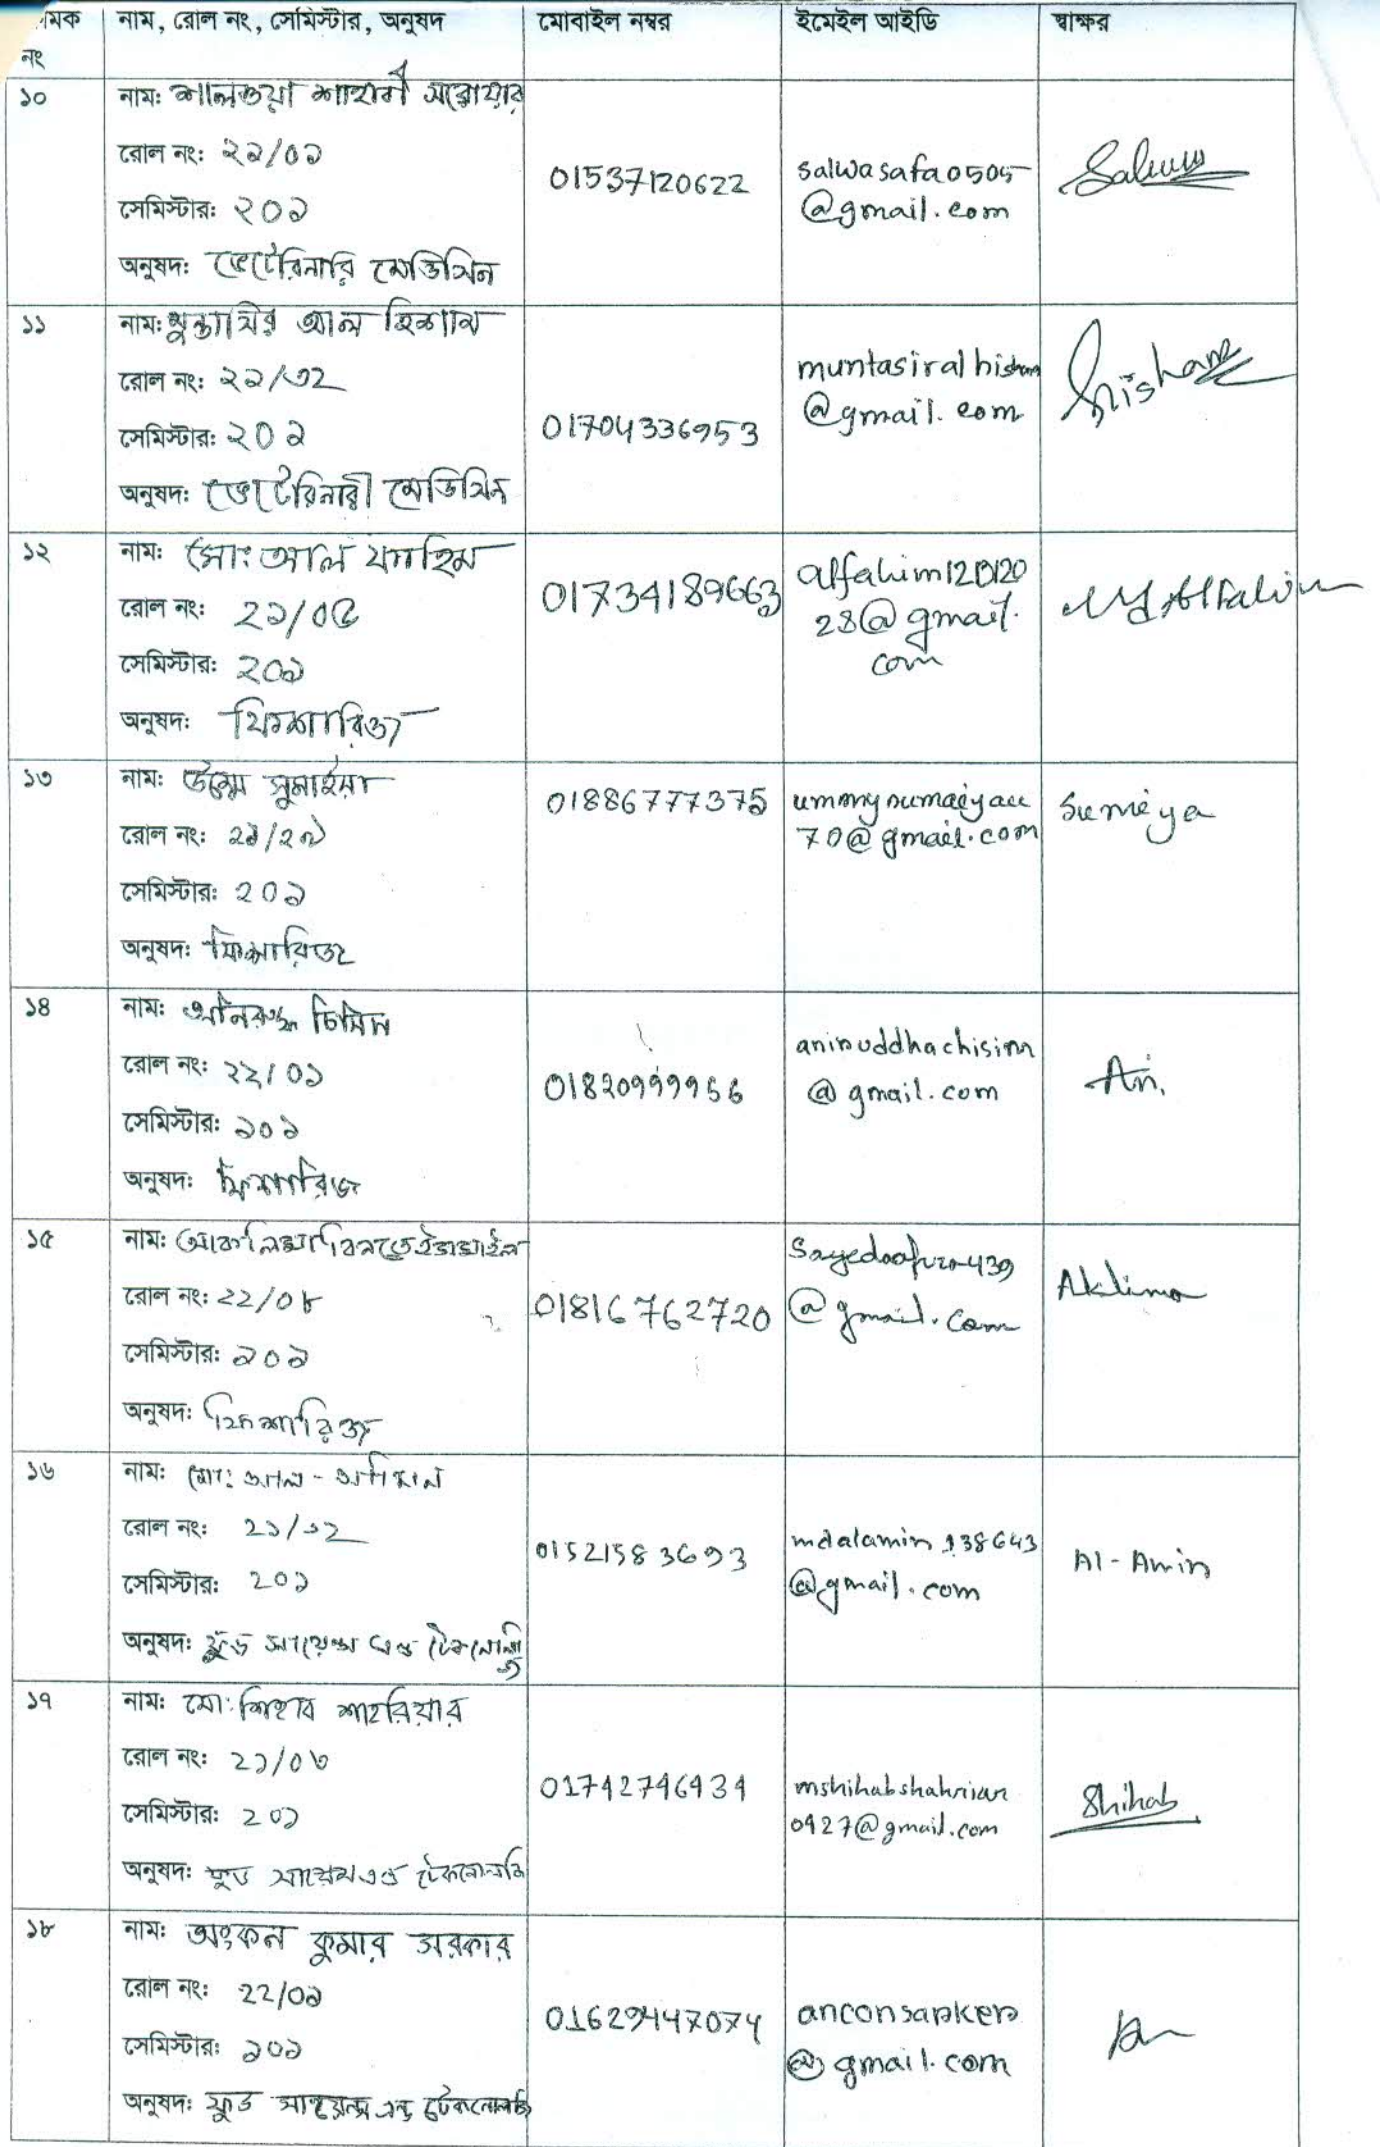 মিক নং	নাম, রোল নং, সেমিস্টার, অনুষদ	মোবাইল নম্বর	ইমেইল আইডি	স্বাক্ষর
১০
নাম: সালওয়া শাহাবী সরোয়ার
রোল নং: ২১/০১
সেমিস্টার: ২০১
অনুষদ: ভেটেরিনারি মেডিসিন
01537120622
salwasafa0505
@gmail.com
১১
নাম: মুন্তাসির আল হিশাম
রোল নং: ২১/৩২
সেমিস্টার: ২০১
অনুষদ: ভেটেরিনারী মেডিসিন
01704336953
muntasiralhisham
@gmail.com
Hisham
১২
নাম: মো: আল ফাহিম
রোল নং: ২১/০৫
সেমিস্টার: ২০১
অনুষদ: ফিশারিজ
01734189663
@gmail.
com
Md Al Fahim
১৩
নাম: উম্মে সুমাইয়া
রোল নং: ২১/২৯
সেমিস্টার: ২০১
অনুষদ: ফিশারিজ
01886777375
70@gmail.com
Sumaiya
১৪
নাম: অনিরুদ্ধ চিসিম
রোল নং: ২২/০১
সেমিস্টার: ১০১
অনুষদ: ফিশারিজ
01820999956
aniruddhachisim
@gmail.com
An.
১৫
নাম: আকলিমা বিনতে ইসমাইল
রোল নং: ২২/০৮
সেমিস্টার: ১০১
অনুষদ: ফিশারিজ
01816762720
@gmail.com
Aklima
১৬
নাম: মো: আল-আমিন
রোল নং: ২১/১২
সেমিস্টার: ২০১
অনুষদ: ফুড সায়েন্স এন্ড টেকনোলজি
01521583693
mdalamin138643
@gmail.com
Al-Amin
১৭
নাম: মো: শিহাব শাহরিয়ার
রোল নং: ২১/০৬
সেমিস্টার: ২০১
অনুষদ: ফুড সায়েন্স এন্ড টেকনোলজি
01742746434
mshihabshahriar
0427@gmail.com
Shihab
১৮
নাম: অংকন কুমার সরকার
রোল নং: 22/০১
সেমিস্টার: ১০১
অনুষদ: ফুড সাইয়েন্স এন্ড টেকনোলজি
01629447074
anconsarker
@gmail.com